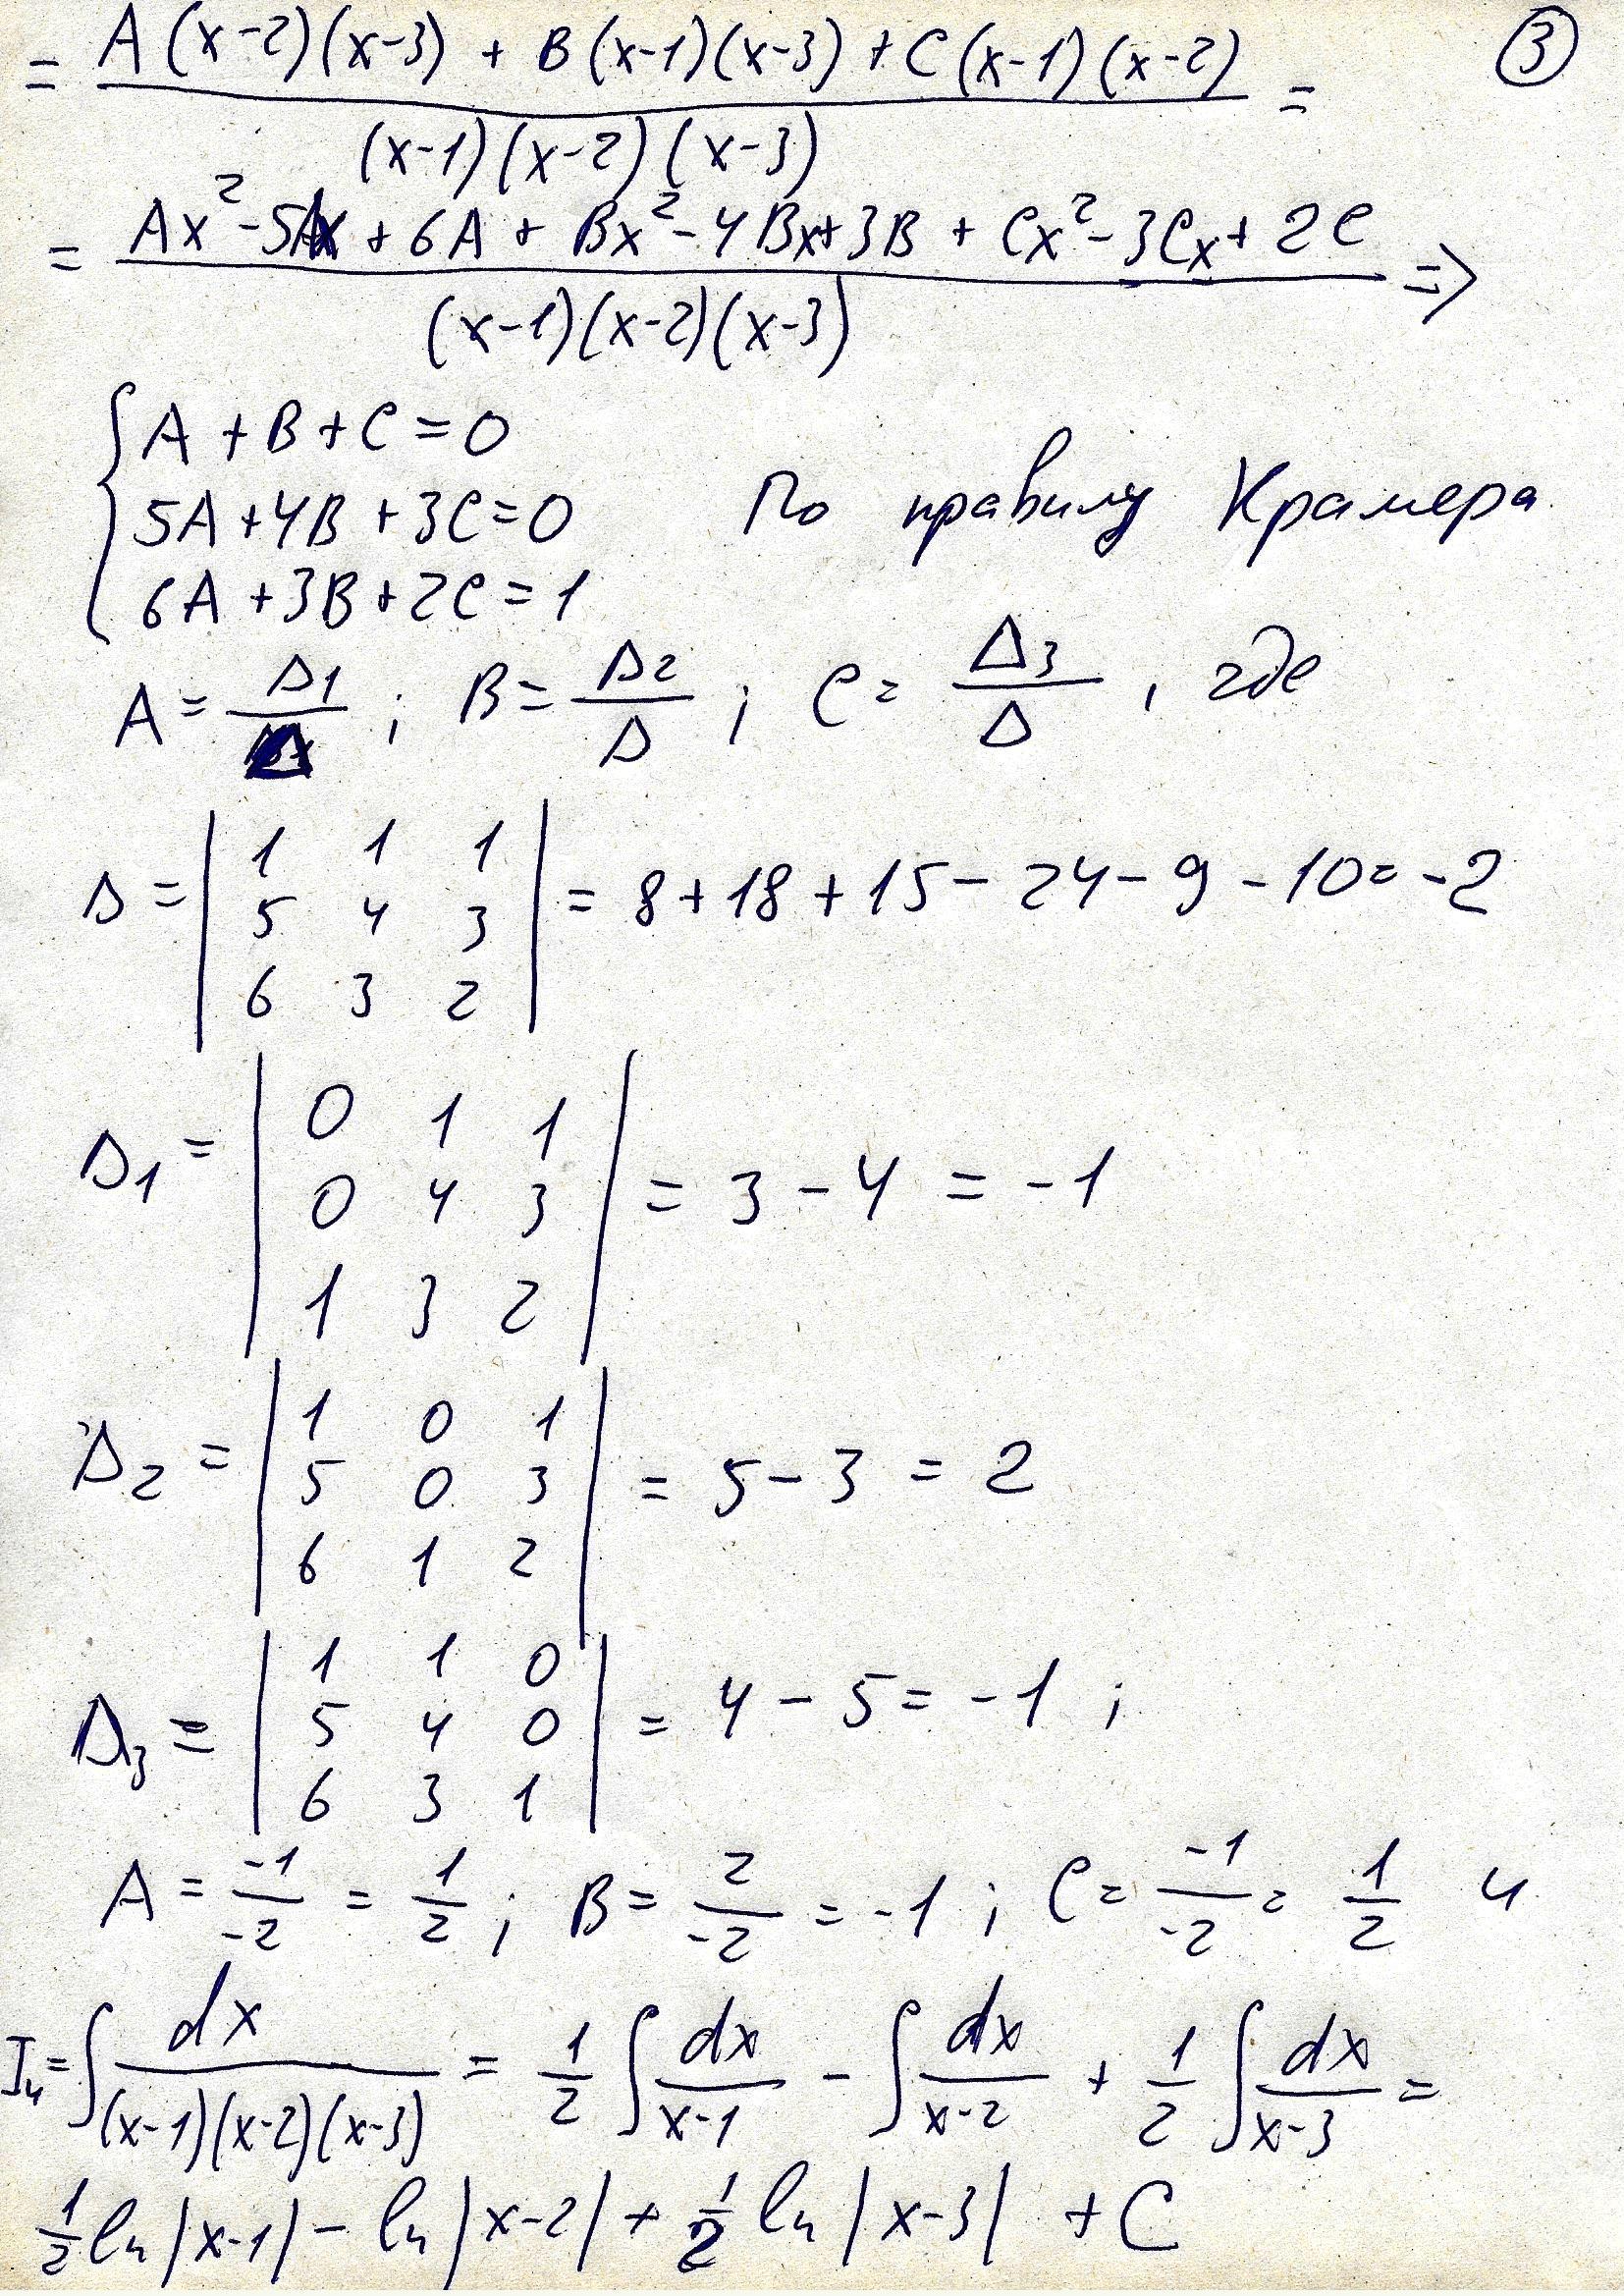 = A(x-2)(x-3) + B(x-1)(x-3) + C(x-1)(x-2) / (x-1)(x-2)(x-3) = ③
= Ax² - 5Ax + 6A + Bx² - 4Bx + 3B + Cx² - 3Cx + 2C / (x-1)(x-2)(x-3) =>
{ A + B + C = 0
5A + 4B + 3C = 0 По правилу Крамера
6A + 3B + 2C = 1
A = Δ1/Δ ; B = Δ2/Δ ; C = Δ3/Δ , где
Δ = | 1 1 1
5 4 3
6 3 2 | = 8 + 18 + 15 - 24 - 9 - 10 = -2
Δ1 = | 0 1 1
0 4 3
1 3 2 | = 3 - 4 = -1
Δ2 = | 1 0 1
5 0 3
6 1 2 | = 5 - 3 = 2
Δ3 = | 1 1 0
5 4 0
6 3 1 | = 4 - 5 = -1 ;
A = -1/-2 = 1/2 ; B = 2/-2 = -1 ; C = -1/-2 = 1/2 и
I₄ = ∫ dx/(x-1)(x-2)(x-3) = 1/2 ∫ dx/x-1 - ∫ dx/x-2 + 1/2 ∫ dx/x-3 =
1/2 ln|x-1| - ln|x-2| + 1/2 ln|x-3| + C